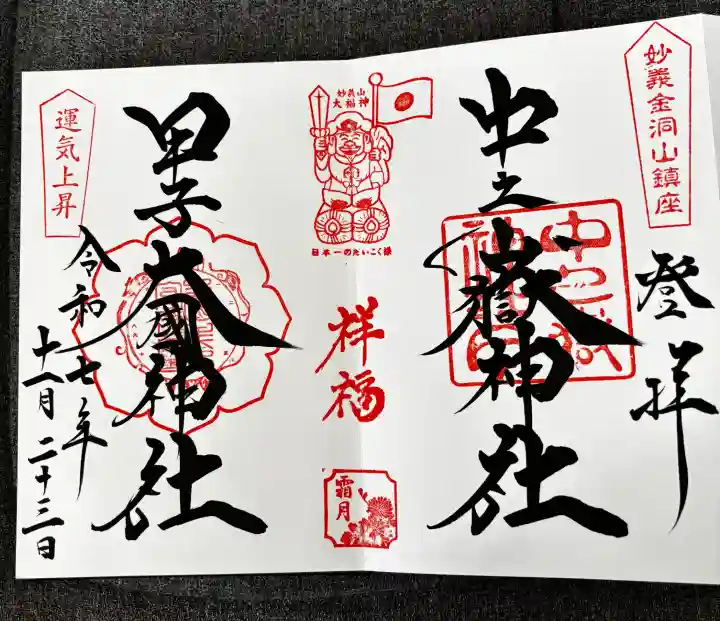 妙義金洞山鎮座
登拝
中之嶽神社
妙義山
大福神
日本一のだいこく様
祥福
霜月
甲子大國神社
運気上昇
令和七年
十一月二十三日